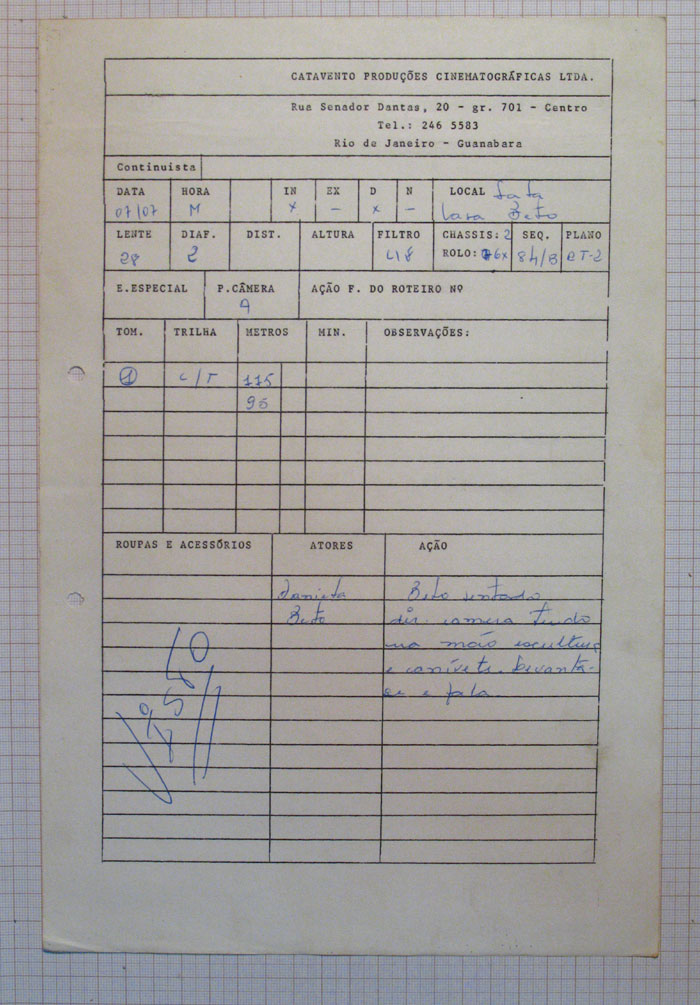 CATAVENTO PRODUÇÕES CINEMATOGRÁFICAS LTDA.
Rua Senador Dantas, 20 - gr. 701 - Centro
Tel.: 246 5583
Rio de Janeiro - Guanabara
Continuista
DATA HORA IN EX D N LOCAL Sala
07/07 M x - x - casa Beto
LENTE DIAF. DIST. ALTURA FILTRO CHASSIS: 2 SEQ. PLANO
28 2 ROLO: 84/B
E.ESPECIAL P.CÂMERA AÇÃO F. DO ROTEIRO Nº
A
TOM. TRILHA METROS MIN. OBSERVAÇÕES:
1 C/T 115
95
ROUPAS E ACESSÓRIOS ATORES AÇÃO
Beto sentado
Beto dir. camera tendo
na mão escultura
e canivete. Levanta-
se e fala.